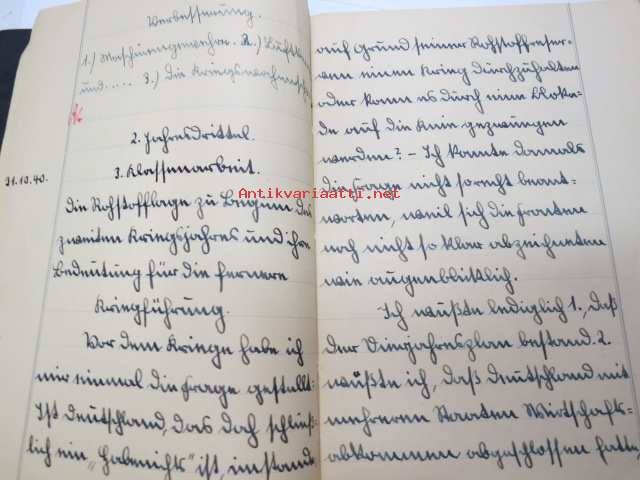 Verbesserung.
1.) Maschinengewehre. 2.) Luftschutz
und.... 3.) Die Kriegswochenschau
2. Jahresdrittel.
31.10.40.
3. Klassenarbeit.
Die Rohstofflage zu Beginn des
zweiten Kriegsjahres und ihre
Bedeutung für die fernere
Kriegführung.
Vor dem Kriege habe ich
mir einmal die Frage gestellt:
Ist Deutschland, das doch schließ-
lich ein „Habenichts" ist, imstande,
auf Grund seiner Rohstoffreser-
ven einen Krieg durchzuhalten
oder kann es durch eine Blocka-
de auf die Knie gezwungen
werden? - Ich konnte damals
die Frage nicht so recht beant-
worten, weil sich die Fronten
noch nicht so klar abzeichneten
wie augenblicklich.
Ich wußte lediglich 1., daß
der Vierjahresplan bestand. 2.
wußte ich, daß Deutschland mit
mehreren Staaten Wirtschafts-
abkommen abgeschlossen hatte,
Antikvariaatti.net